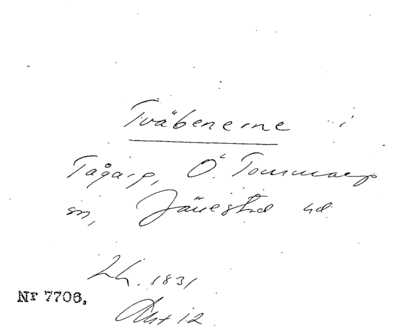 Tväbenerne i
Tågarp, Ö. Tommarp
sn, Järrestad hd
Lh. 1831
Nr 7706.
Ant 12